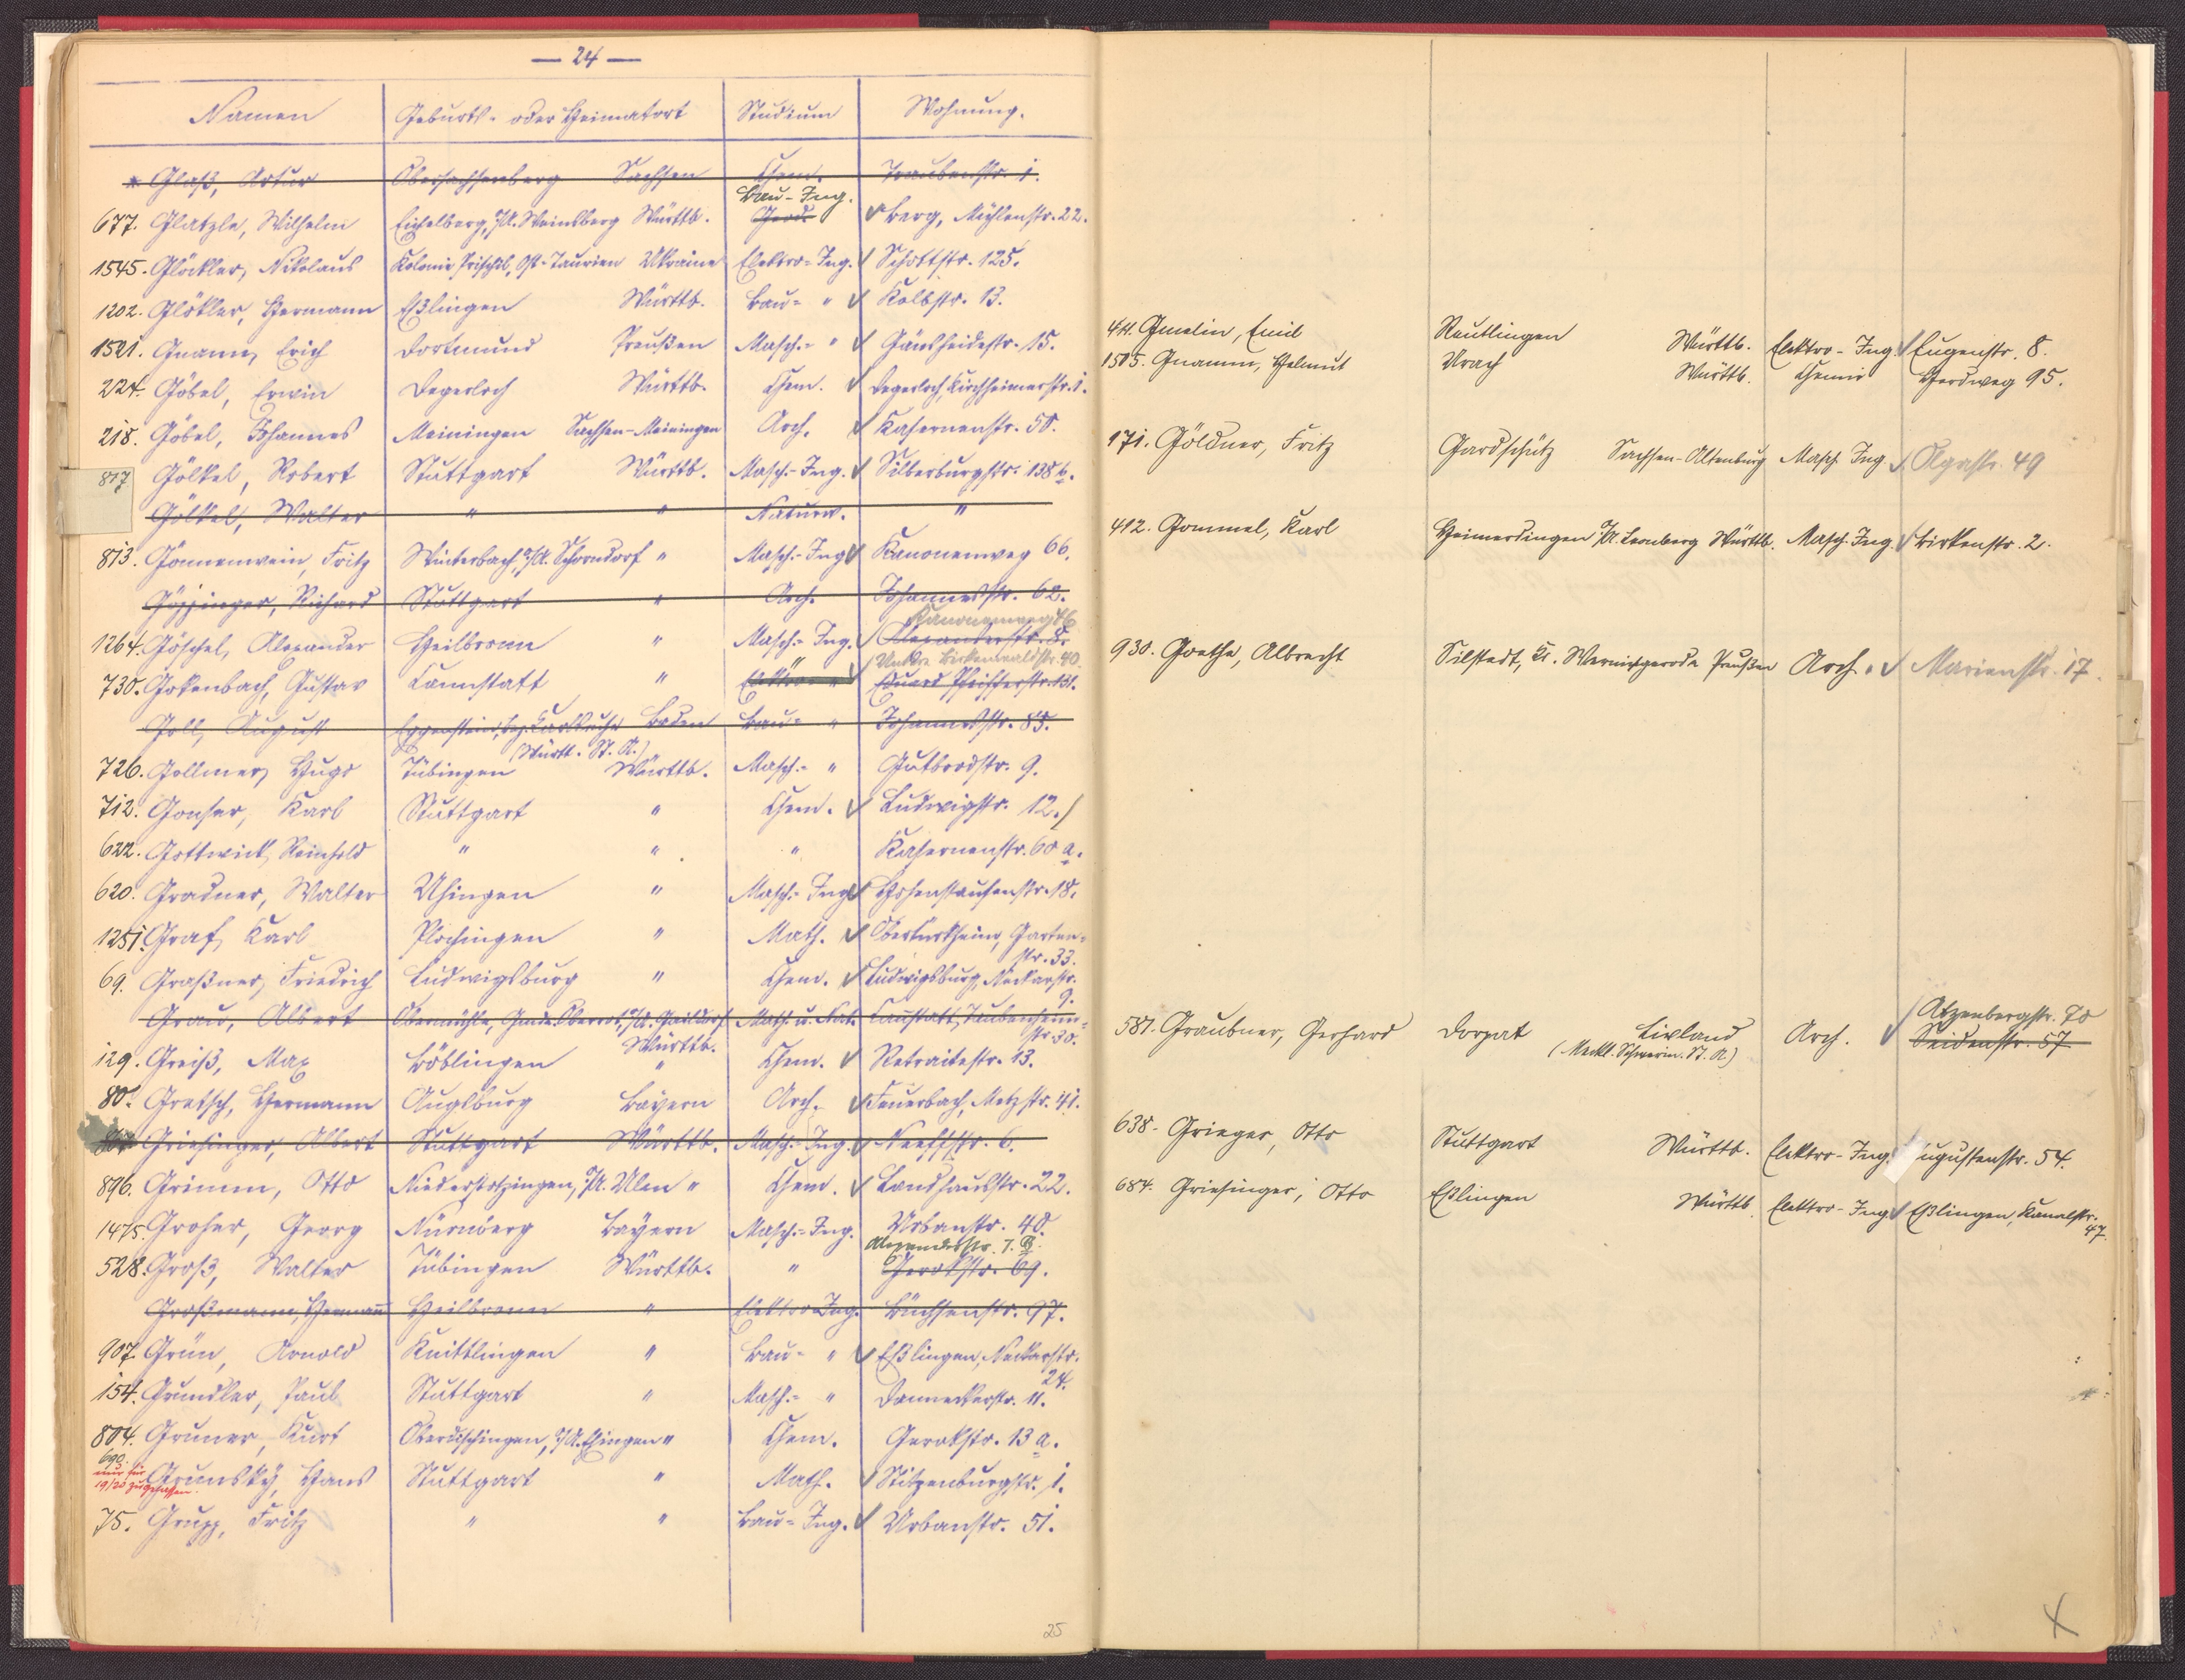 — 24 —
Namen Geburts- oder Heimatort Studium Wohnung.
Glaß, Artur Obersachsenberg Sachsen Chem. Traubenstr. 1.
677. Glatzle, Wilhelm Eichelberg, O/A. Weinsberg Württb. Bau-Ing. Geod. Berg, Mühlenstr. 22.
1545. Glöckler, Nikolaus Kolonie Prischib, Ost-Taurien Ukraine Elektro-Ing. Schottstr. 125.
1202. Glökler, Hermann Eßlingen Württb. Bau- " Kolbstr. 13.
1521. Gnann, Erich Dortmund Preußen Masch.- " Gänsheidestr. 15.
224. Göbel, Erwin Degerloch Württb. Chem. Degerloch, Kirchheimerstr. 1.
218. Göbel, Johannes Meiningen Sachsen-Meiningen Arch. Kasernenstr. 50.
817 Gölkel, Robert Stuttgart Württb. Masch.-Ing. Silberburgstr. 138 b.
Gölkel, Walter " " Naturw. "
813. Gönnenwein, Fritz Winterbach, O/A. Schorndorf " Masch.-Ing. Kanonenweg 66.
Göppinger, Richard Stuttgart " Arch. Johannesstr. 62.
1264. Göschel, Alexander Heilbronn " Masch.-Ing. Kanonenweg 76 Alexanderstr. 8.
730. Gokenbach, Gustav Cannstatt " Elektro- " Untere Birkenwaldstr. 40. Eduard Pfeifferstr. 131.
Goll, August Eggenstein, Bez. Karlsruhe Baden Bau- " Johannesstr. 85.
(Württ. St. A.)
726. Gollmer, Hugo Tübingen Württb. Masch.- " Gutbrodstr. 9.
712. Gonser, Karl Stuttgart " Chem. Ludwigstr. 12.
622. Gottwick, Reinhold " " " Kasernenstr. 60 a.
620. Gradner, Walter Uhingen " Masch.-Ing. Hohenstaufenstr. 18.
1251. Graf, Karl Plochingen " Math. Obertürkheim, Garten-
str. 33.
69. Graßner, Friedrich Ludwigsburg " Chem. Ludwigsburg, Neckarstr.
9.
Grau, Albert Obermühle, Gmde. Oberrot, O/A. Gaildorf Württb. Math. u. Nat. Canstatt, Taubenheim-
str. 30.
129. Greiß, Max Böblingen " Chem. Retraitestr. 13.
80. Gretsch, Hermann Augsburg Bayern Arch. Feuerbach, Metzstr. 41.
Griesinger, Albert Stuttgart Württb. Masch.-Ing. Neeffstr. 6.
896. Grimm, Otto Niederstotzingen, O/A. Ulm " Chem. Landhausstr. 22.
1475. Groher, Georg Nürnberg Bayern Masch.-Ing. Urbanstr. 40.
528. Groß, Walter Tübingen Württb. " Alexanderstr. 7. B. Gerokstr. 69.
Großmann, Hermann Heilbronn " Elektro-Ing. Büchsenstr. 97.
907. Grün, Arnold Knittlingen " Bau- " Eßlingen, Neckarstr.
24.
154. Grundler, Paul Stuttgart " Masch.- " Danneckerstr. 11.
804. Gruner, Kurt Oberdischingen, O/A. Ehingen " Chem. Gerokstr. 13 a.
690. nur für 19/20 zugelassen. Grunsky, Hans Stuttgart " Math. Stitzenburgstr. 1.
75. Grupp, Fritz " " Bau-Ing. Urbanstr. 51.
25
411. Gmelin, Emil Reutlingen Württb. Elektro-Ing. Eugenstr. 8.
1505. Gnamm, Helmut Urach Württb. Chemie Herdweg 95.
171. Göldner, Fritz Gardschütz Sachsen-Altenburg Masch. Ing. Olgastr. 49
412. Gommel, Karl Heimerdingen O/A. Leonberg Württb. Masch. Ing. Birkenstr. 2.
930. Goethe, Albrecht Silstedt, Kr. Wernigerode Preußen Arch. Marienstr. 17.
581. Graubner, Gerhard Dorpat Livland Arch. Atzenbergstr. 70
(Meckl. Schwerin. St. A.) Seidenstr. 57
638. Grieger, Otto Stuttgart Württb. Elektro-Ing. Augustenstr. 54.
684. Griesinger, Otto Eßlingen Württb. Elektro-Ing. Eßlingen, Kanalstr.
47.
X